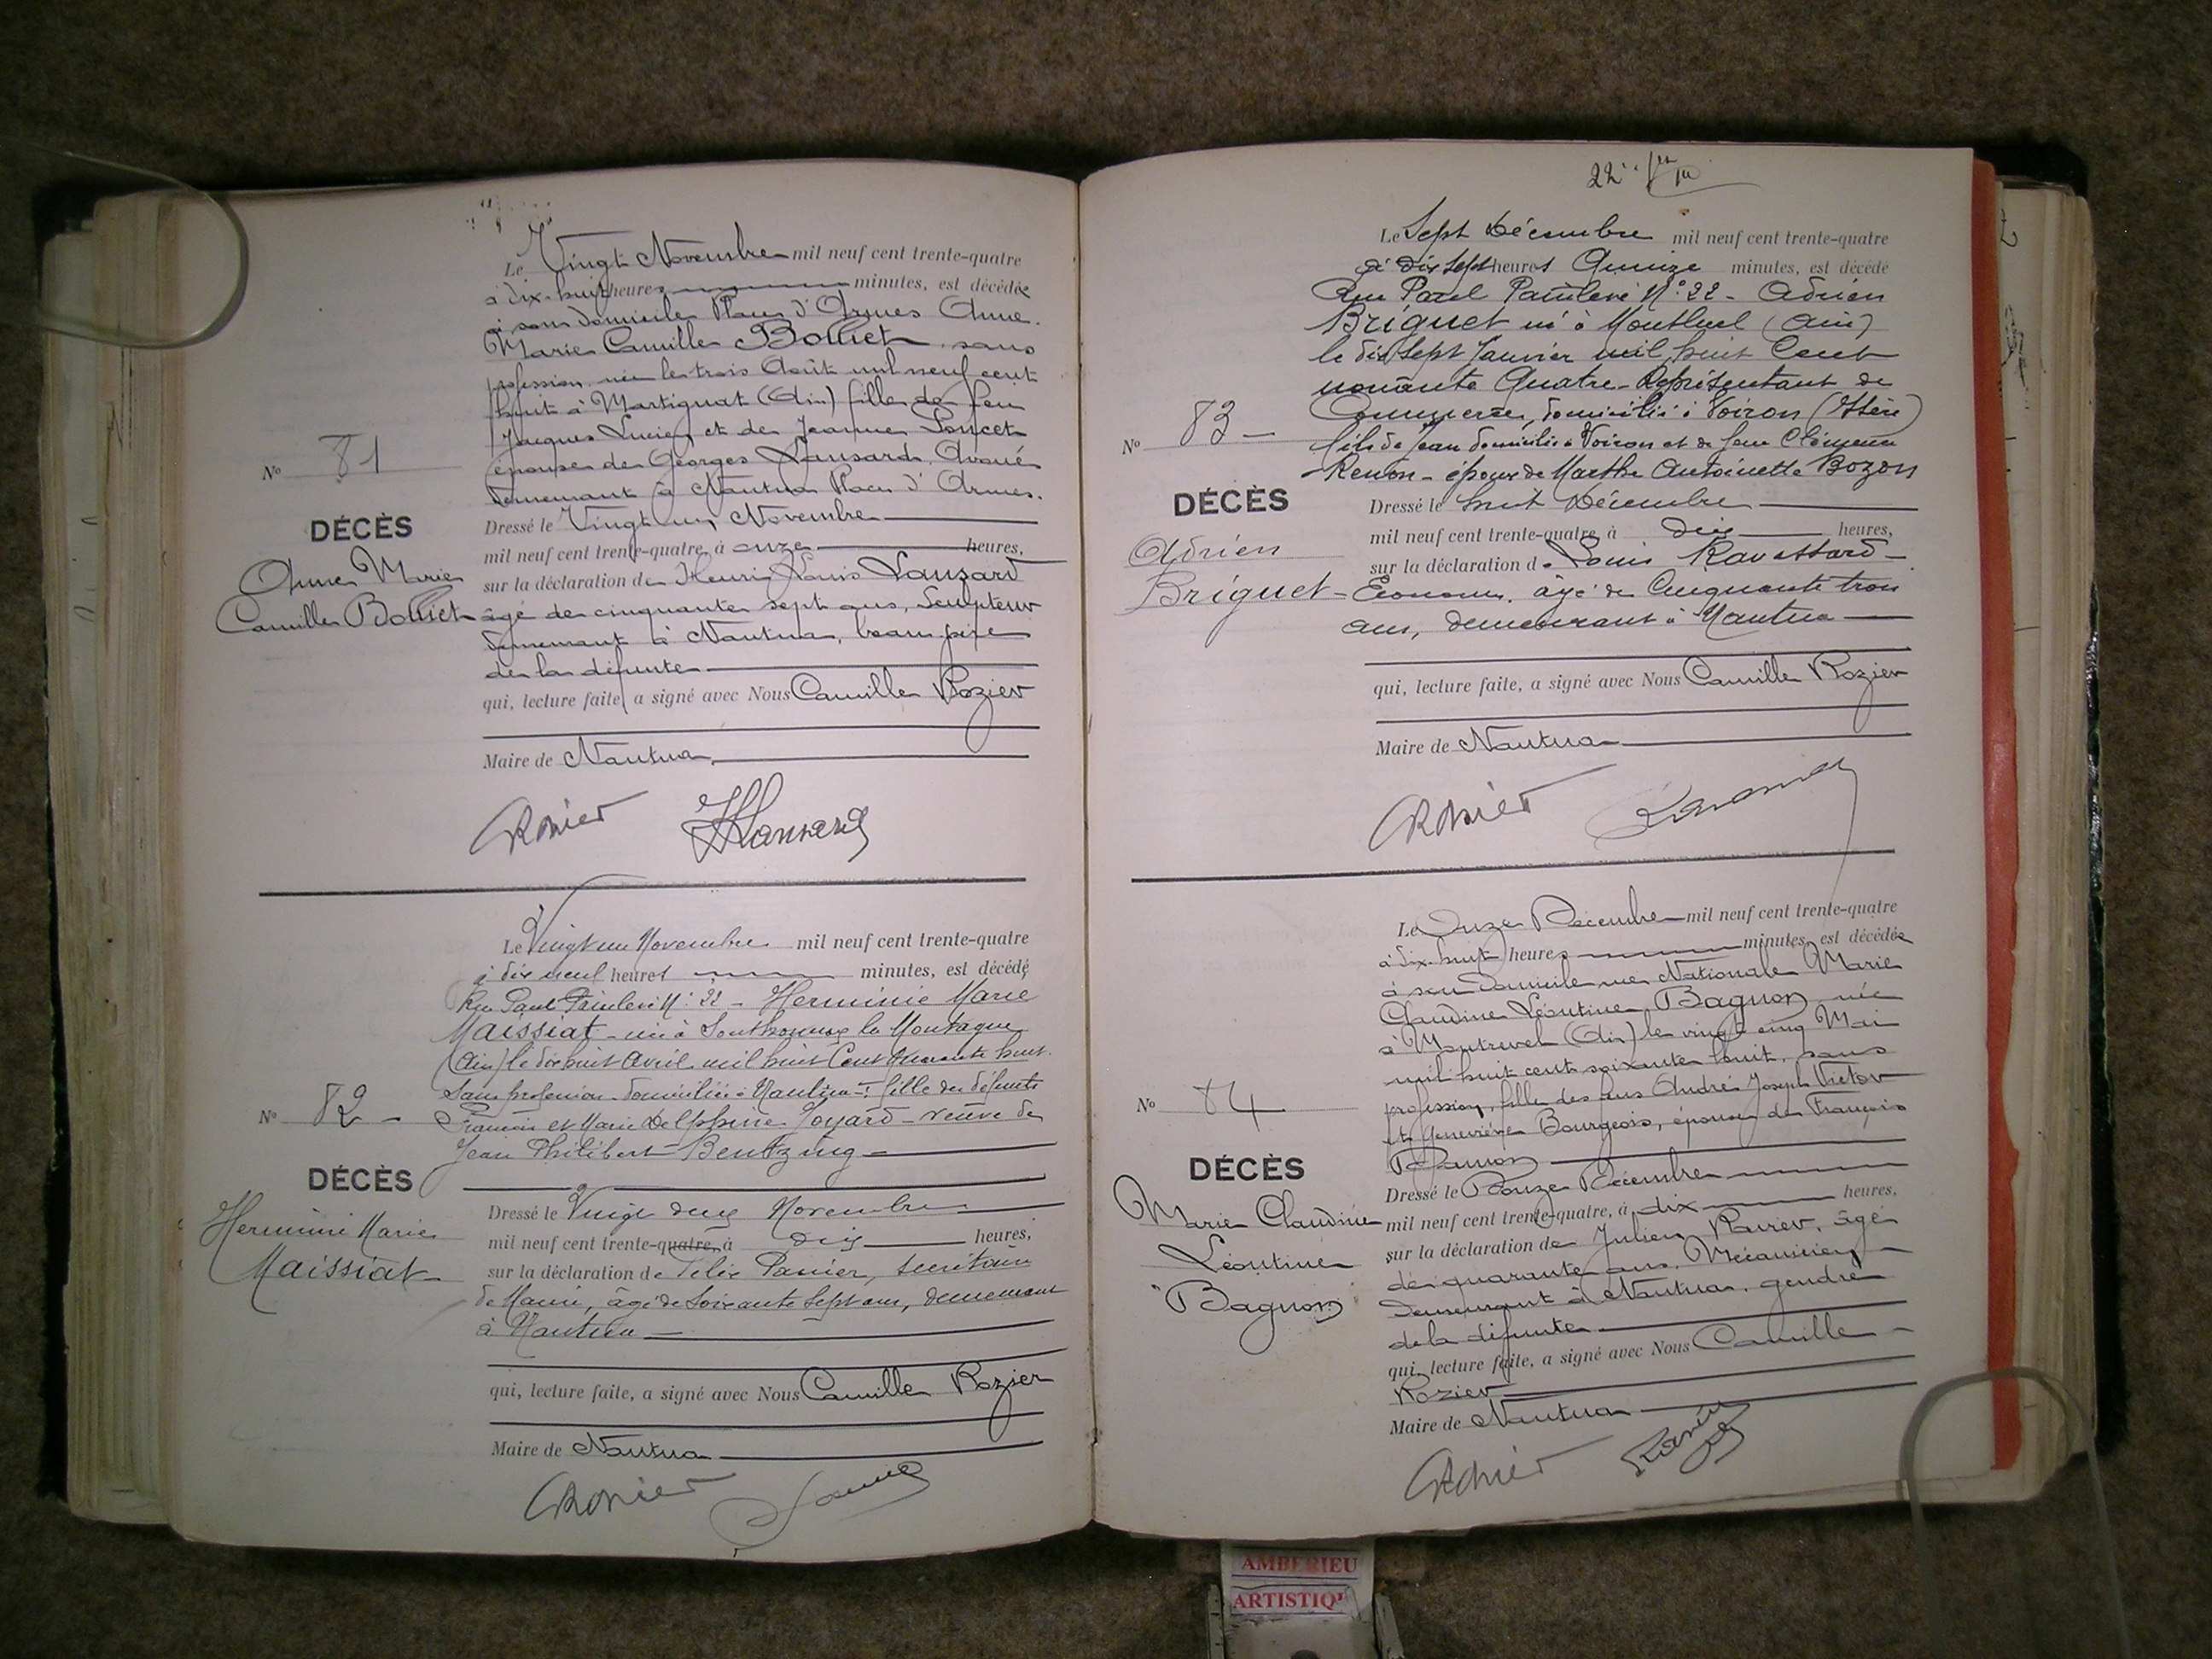 Le Vingt Novembre mil neuf cent trente-quatre
à dix-huit heures minutes, est décédée
à son domicile Place d'Armes Anne
Marie Camille Bolliet, sans
profession née le trois Août mil neuf cent
huit à Martignat (Ain) fille de feu
Jacques Lucien et de Jeanne Poncet
épouse de Georges Lansard, Avoué
demeurant à Nantua Place d'Armes.
No 81
DÉCÈS
Anne Marie
Camille Bolliet
Dressé le Vingt un Novembre
mil neuf cent trente-quatre, à onze heures,
sur la déclaration de Henri Louis Lansard
âgé de cinquante sept ans, Sculpteur
demeurant à Nantua, beau père
de la défunte
qui, lecture faite, a signé avec Nous Camille Rozier
Maire de Nantua
CRozier HLansard
Le Vingt un Novembre mil neuf cent trente-quatre
à dix neuf heures minutes, est décédé
Rue Paul Painlevé N° 22 - Herminie Marie
Maissiat - née à Sonthonnax la Montagne
(Ain) le dix huit Avril mil huit Cent quarante huit.
Sans profession - domiciliée à Nantua - fille des défunts
François et Marie Delphine Joyard - veuve de
Jean Philibert Bentzing -
No 82 -
DÉCÈS
Herminie Marie
Maissiat
Dressé le Vingt deux Novembre
mil neuf cent trente-quatre, à dix heures,
sur la déclaration de Félix Panier, secrétaire
de Mairie, âgé de Soixante Sept ans, demeurant
à Nantua
qui, lecture faite, a signé avec Nous Camille Rozier
Maire de Nantua
CRozier
22
Le Sept Décembre mil neuf cent trente-quatre
à dix sept heures Quinze minutes, est décédé
Rue Paul Painlevé N° 22 - Adrien
Briguet né à Montluel (Ain)
le dix sept Janvier mil huit Cent
nonante Quatre - Représentant de
Commerce, domicilié à Voiron (Isère)
fils de Jean domicilié à Voiron et de feue Clémence
Renon - époux de Marthe Antoinette Bozon
No 83 -
DÉCÈS
Adrien
Briguet -
Dressé le huit Décembre
mil neuf cent trente-quatre, à dix heures,
sur la déclaration de Louis Ravassard -
Econome, âgé de Cinquante trois
ans, demeurant à Nantua
qui, lecture faite, a signé avec Nous Camille Rozier
Maire de Nantua
CRozier
Le Onze Décembre mil neuf cent trente-quatre
à dix-huit heures minutes, est décédée
à son domicile rue Nationale Marie
Claudine Léontine Bagnon née
à Montrevel (Ain) le vingt cinq Mai
mil huit cent soixante huit, sans
profession, fille des feus André Joseph Victor
et Geneviève Bourgeois, épouse de François
No 84
DÉCÈS
Marie Claudine
Léontine
Bagnon
Dressé le Douze Décembre
mil neuf cent trente-quatre, à dix heures,
sur la déclaration de Julien âgé
de quarante ans, Mécanicien
demeurant à Nantua, gendre
de la défunte
qui, lecture faite, a signé avec Nous Camille
Rozier
Maire de Nantua
CRozier
AMBERIEU
ARTISTIQ